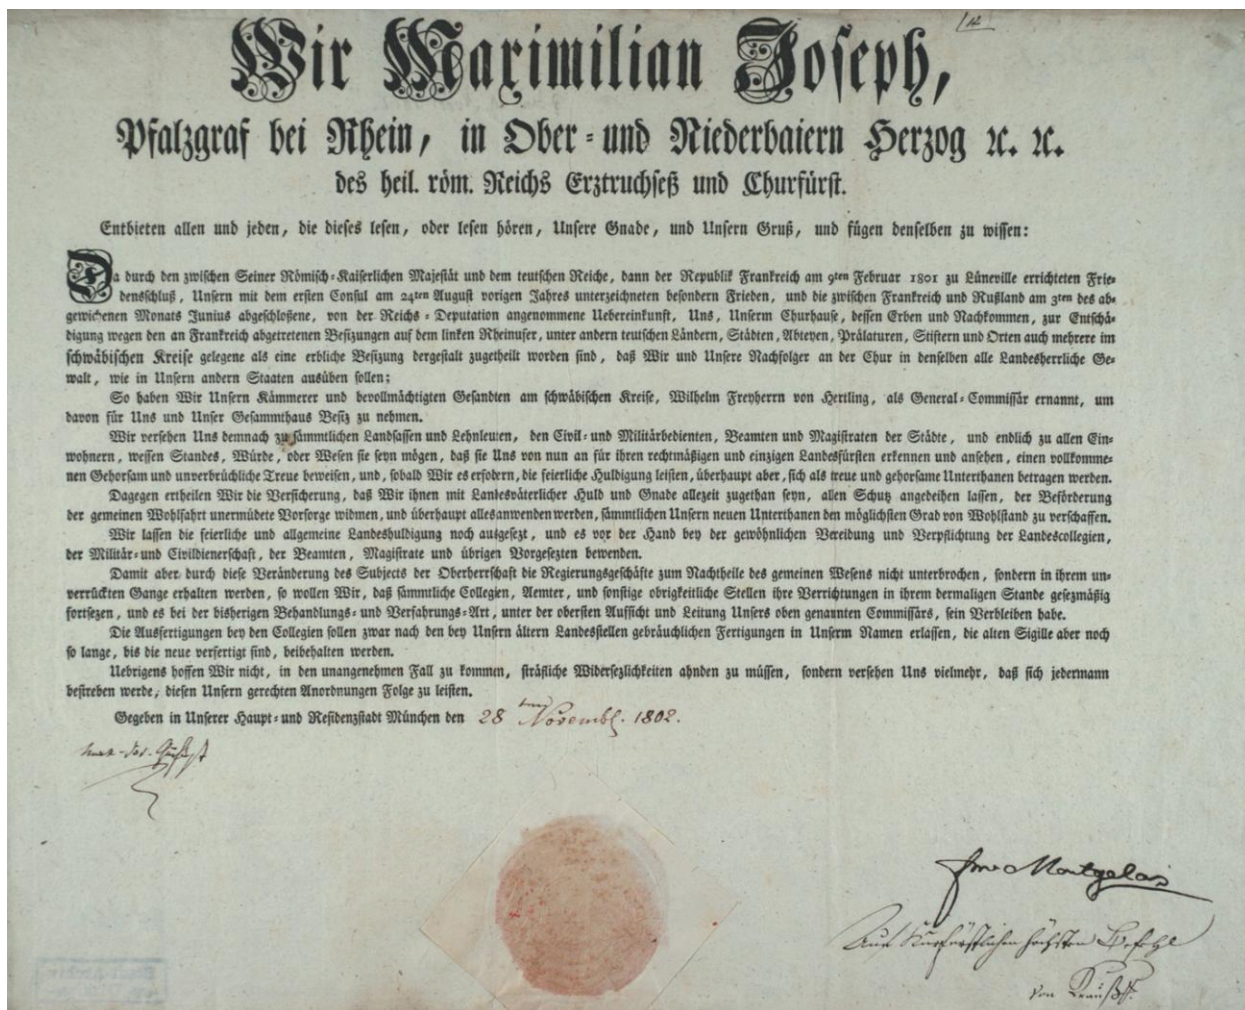 Wir Maximilian Joseph,
Pfalzgraf bei Rhein, in Ober- und Niederbaiern Herzog ꝛc. ꝛc.
des heil. röm. Reichs Erztruchseß und Churfürst.
Entbieten allen und jeden, die dieses lesen, oder lesen hören, Unsere Gnade, und Unsern Gruß, und fügen denselben zu wissen:
Da durch den zwischen Seiner Römisch-Kaiserlichen Majestät und dem teutschen Reiche, dann der Republik Frankreich am 9ten Februar 1801 zu Lüneville errichteten Frie-
densschluß, Unsern mit dem ersten Consul am 24ten August vorigen Jahres unterzeichneten besondern Frieden, und die zwischen Frankreich und Rußland am 3ten des ab-
gewichenen Monats Junius abgeschloßene, von der Reichs-Deputation angenommene Uebereinkunft, Uns, Unserm Churhause, dessen Erben und Nachkommen, zur Entschä-
digung wegen den an Frankreich abgetretenen Besizungen auf dem linken Rheinufer, unter andern teutschen Ländern, Städten, Abteyen, Prälaturen, Stiftern und Orten auch mehrere im
schwäbischen Kreise gelegene als eine erbliche Besizung dergestalt zugetheilt worden sind, daß Wir und Unsere Nachfolger an der Chur in denselben alle Landesherrliche Ge-
walt, wie in Unsern andern Staaten ausüben sollen;
So haben Wir Unsern Kämmerer und bevollmächtigten Gesandten am schwäbischen Kreise, Wilhelm Freyherrn von Hertling, als General-Commissär ernannt, um
davon für Uns und Unser Gesammthaus Besiz zu nehmen.
Wir versehen Uns demnach zu sämmtlichen Landsassen und Lehnleuten, den Civil- und Militärbedienten, Beamten und Magistraten der Städte, und endlich zu allen Ein-
wohnern, wessen Standes, Würde, oder Wesen sie seyn mögen, daß sie Uns von nun an für ihren rechtmäßigen und einzigen Landesfürsten erkennen und ansehen, einen vollkomme-
nen Gehorsam und unverbrüchliche Treue beweisen, und, sobald Wir es erfodern, die feierliche Huldigung leisten, überhaupt aber, sich als treue und gehorsame Unterthanen betragen werden.
Dagegen ertheilen Wir die Versicherung, daß Wir ihnen mit Landesväterlicher Huld und Gnade allezeit zugethan seyn, allen Schutz angedeihen lassen, der Beförderung
der gemeinen Wohlfahrt unermüdete Vorsorge widmen, und überhaupt alles anwenden werden, sämmtlichen Unsern neuen Unterthanen den möglichsten Grad von Wohlstand zu verschaffen.
Wir lassen die feierliche und allgemeine Landeshuldigung noch ausgesezt, und es vor der Hand bey der gewöhnlichen Vereidung und Verpflichtung der Landescollegien,
der Militär- und Civildienerschaft, der Beamten, Magistrate und übrigen Vorgesezten bewenden.
Damit aber durch diese Veränderung des Subjects der Oberherrschaft die Regierungsgeschäfte zum Nachtheile des gemeinen Wesens nicht unterbrochen, sondern in ihrem un-
verrückten Gange erhalten werden, so wollen Wir, daß sämmtliche Collegien, Aemter, und sonstige obrigkeitliche Stellen ihre Verrichtungen in ihrem dermaligen Stande gesezmäßig
fortsezen, und es bei der bisherigen Behandlungs- und Verfahrungs-Art, unter der obersten Aufsicht und Leitung Unsers oben genannten Commissärs, sein Verbleiben habe.
Die Ausfertigungen bey den Collegien sollen zwar nach den bey Unsern ältern Landesstellen gebräuchlichen Fertigungen in Unserm Namen erlassen, die alten Sigille aber noch
so lange, bis die neue verfertigt sind, beibehalten werden.
Uebrigens hoffen Wir nicht, in den unangenehmen Fall zu kommen, sträfliche Widersezlichkeiten ahnden zu müssen, sondern versehen Uns vielmehr, daß sich jedermann
bestreben werde, diesen Unsern gerechten Anordnungen Folge zu leisten.
Gegeben in Unserer Haupt- und Residenzstadt München den 28 ten Novembr. 1802.
Max. Jos. Churfürst
Montgelas
Auf Kurfürstlichen höchsten Befehl
von